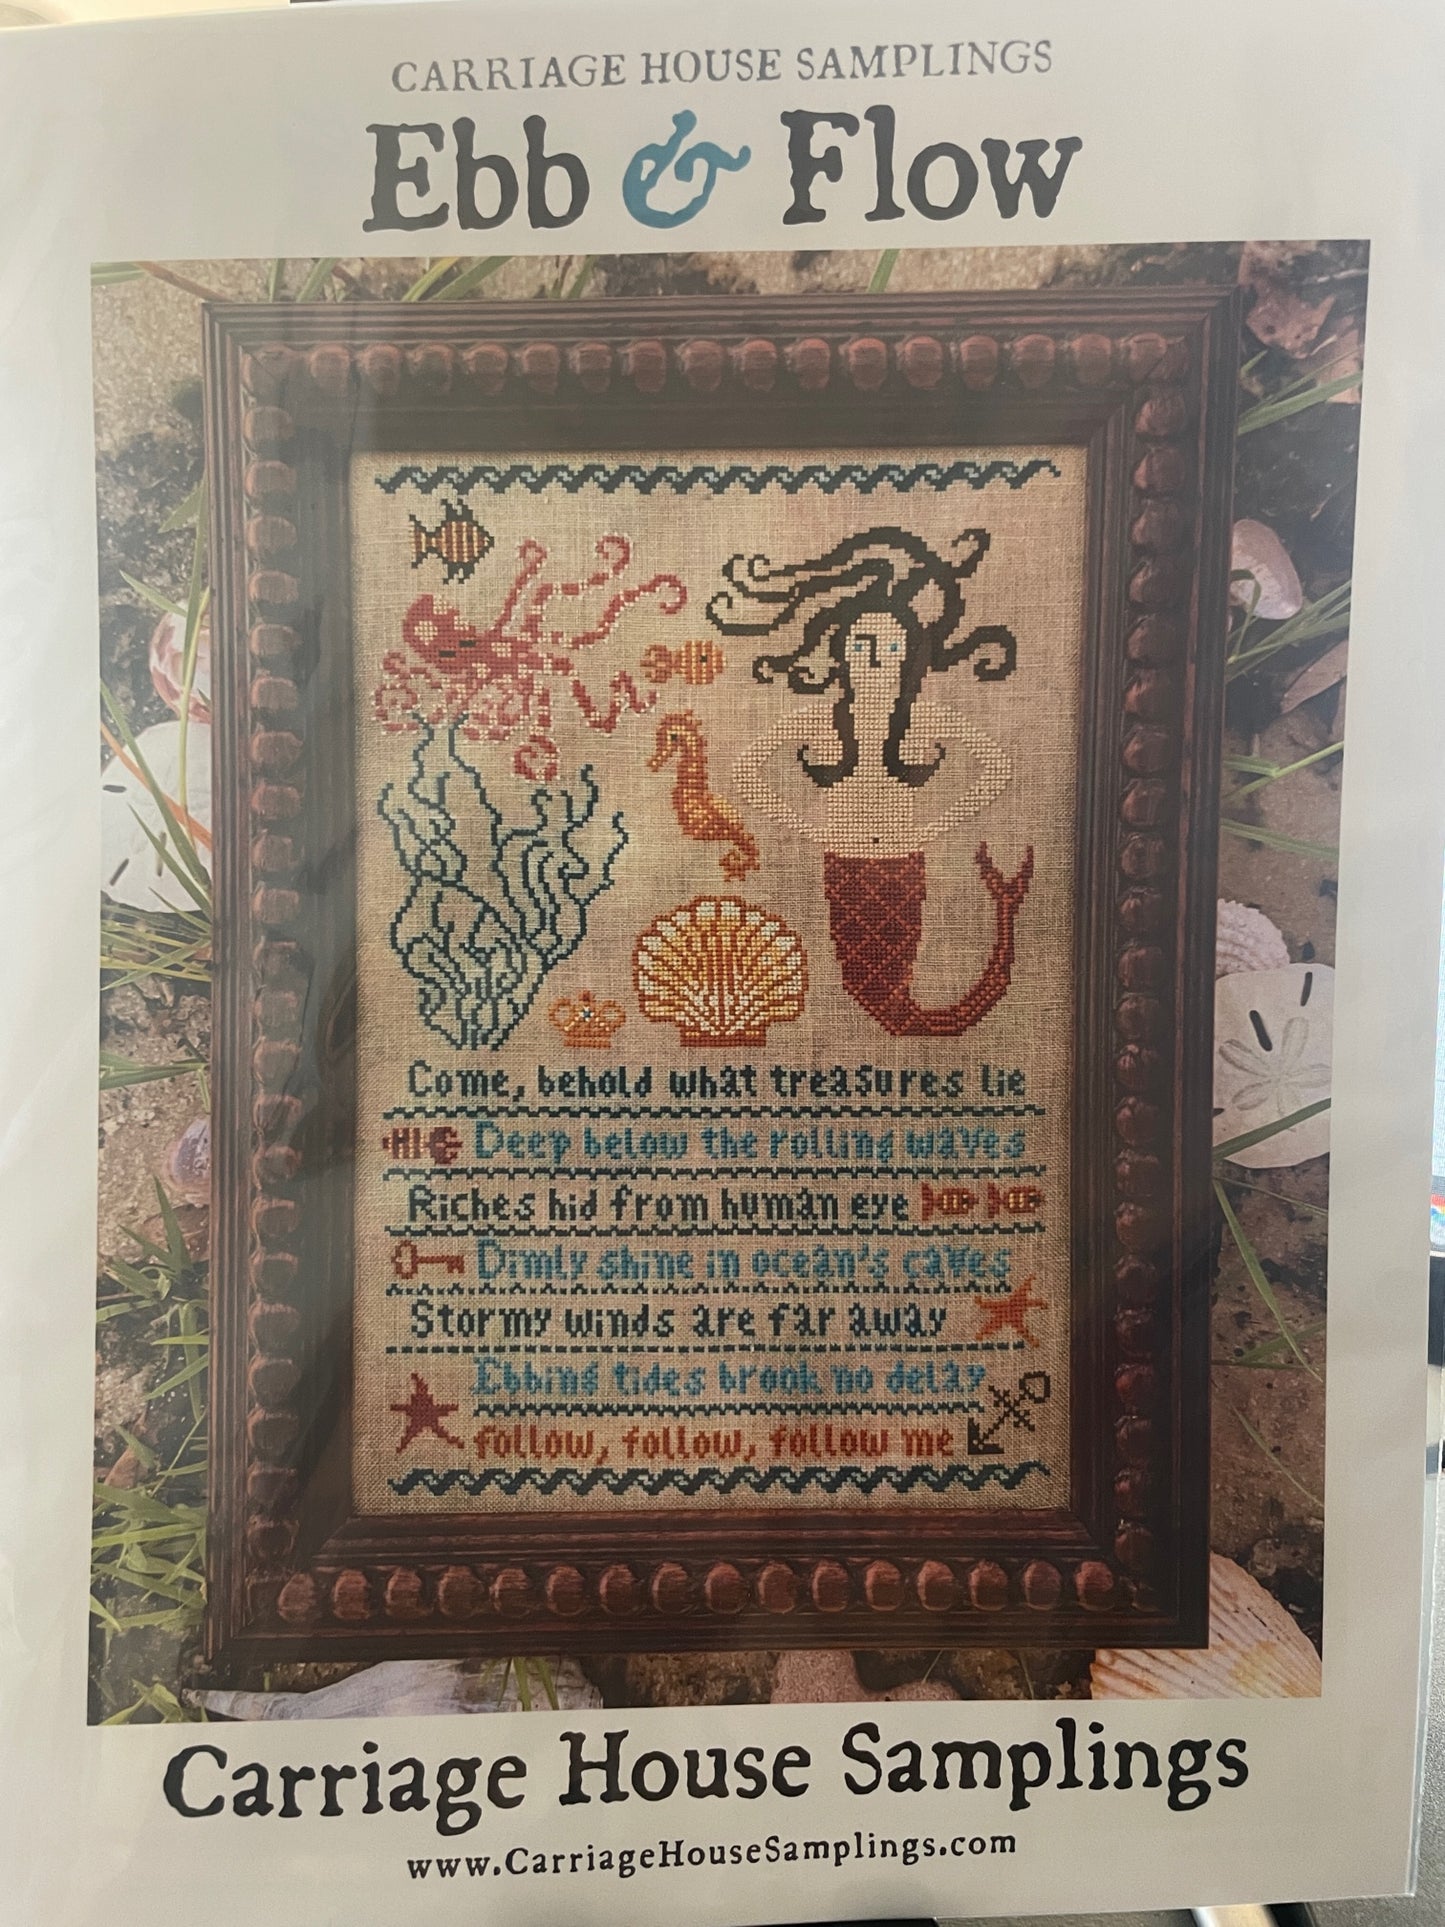 CARRIAGE HOUSE SAMPLINGS
Ebb & Flow
Come, behold what treasures lie
Deep below the rolling waves
Riches hid from human eye
Dimly shine in ocean's caves
Stormy winds are far away
Ebbing tides brook no delay
follow, follow, follow me
Carriage House Samplings
www.CarriageHouseSamplings.com